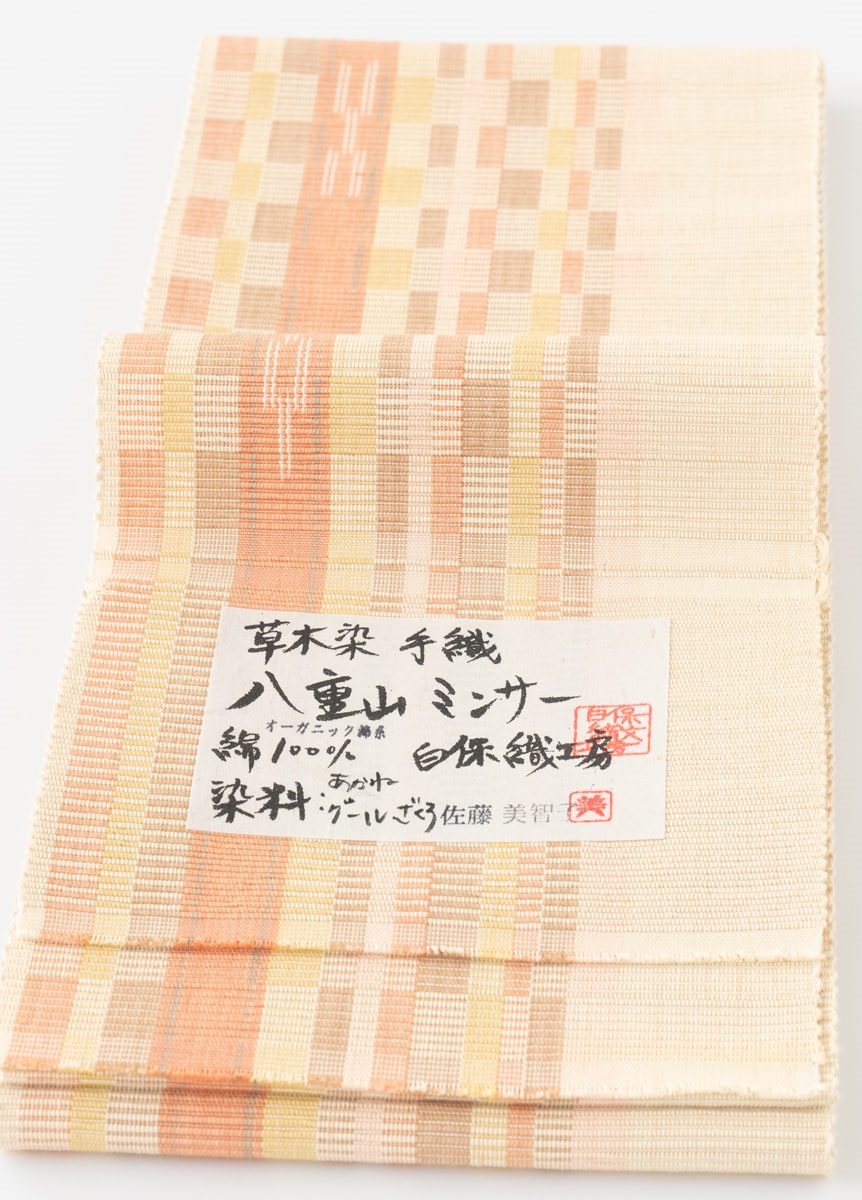 草木染 手織
八重山 ミンサー
オーガニック綿糸
綿100% 白保 織工房
染料:あかね グール ざくろ 佐藤 美智子
美